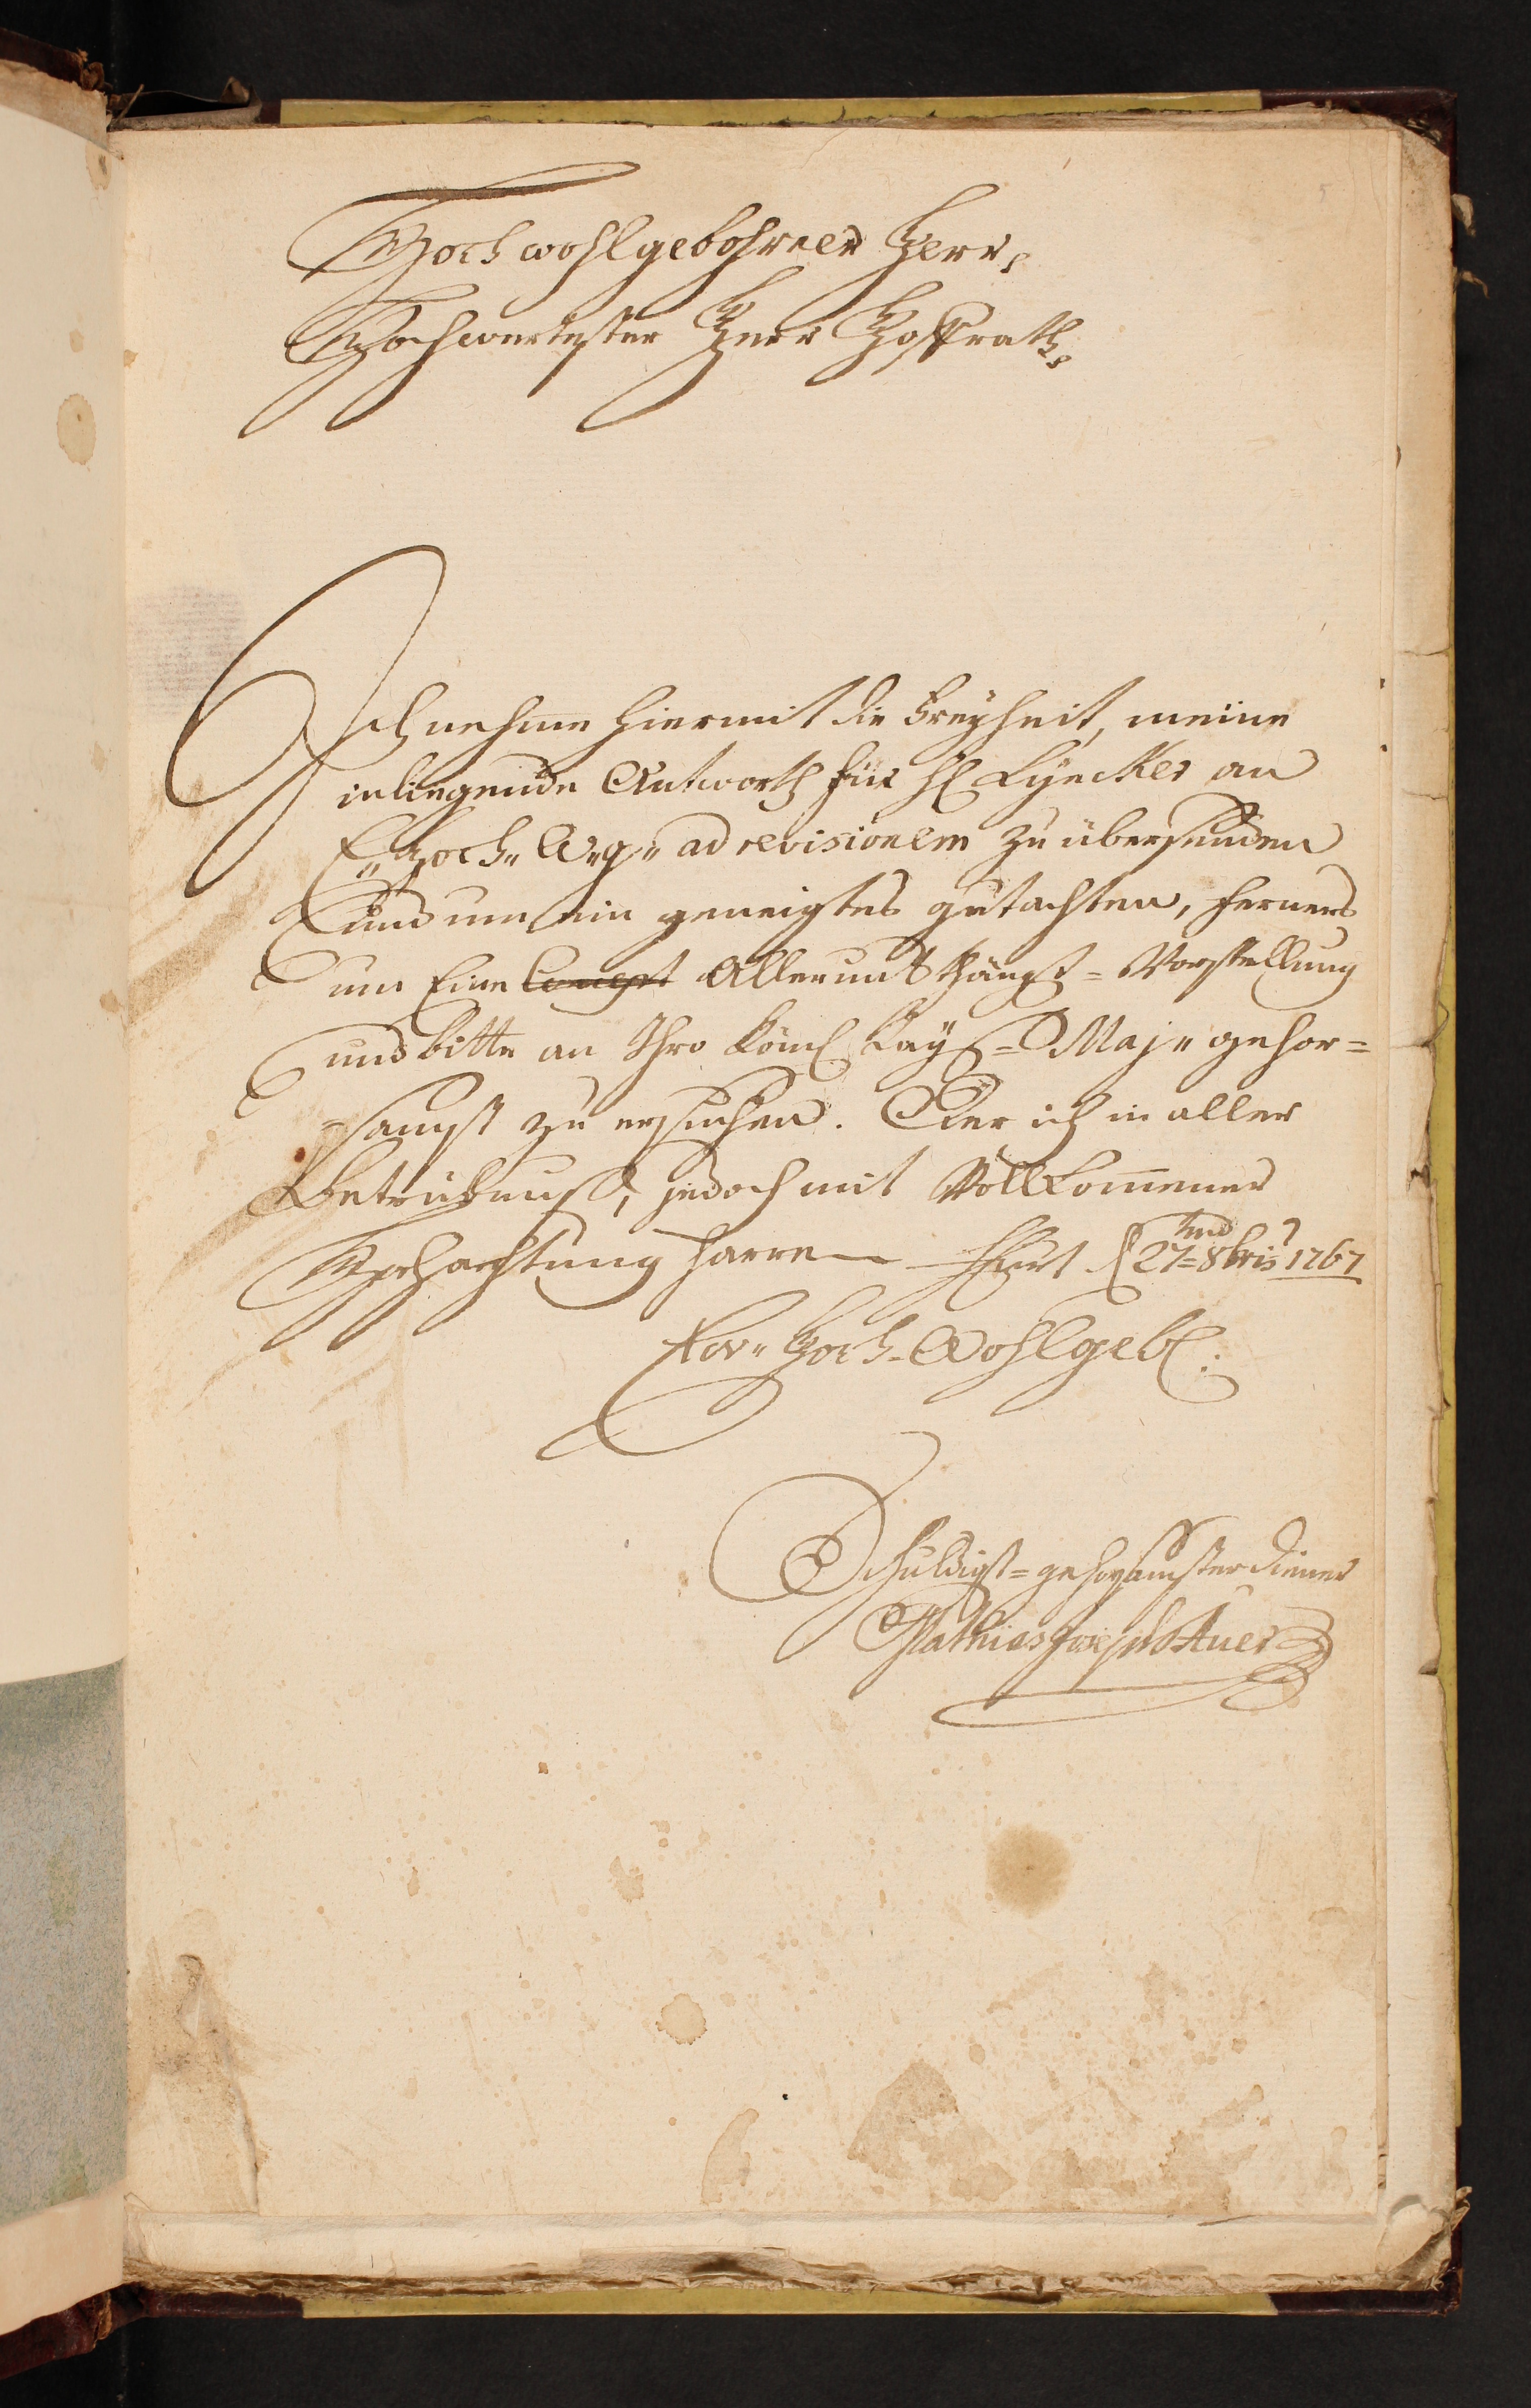 Hochwohlgebohrner Herr,
Hochwertester Herr Hoffrath,
Ich nehme hiermit die Freyheit, meine
inliegende Antworth für H Lyncker an
E„ Hoch„ W„g„ ad revisionem zu übersenden
und um ein geneigtes gutachten, ferners
um Eine Concept Allerunterthänigst= Vorstellung
und bitte an Ihro Röml Kayſ= Maj„ gehor=
samst zu ersuchen. Der ich in aller
Betrübnuß, jedoch mit Vollkommener
Hochachtung harre 27=8bris 1767
Ew„ Hoch-Wohlgebl:
Schuldigst=gehorsamster diener
Mathias Joseph Auer